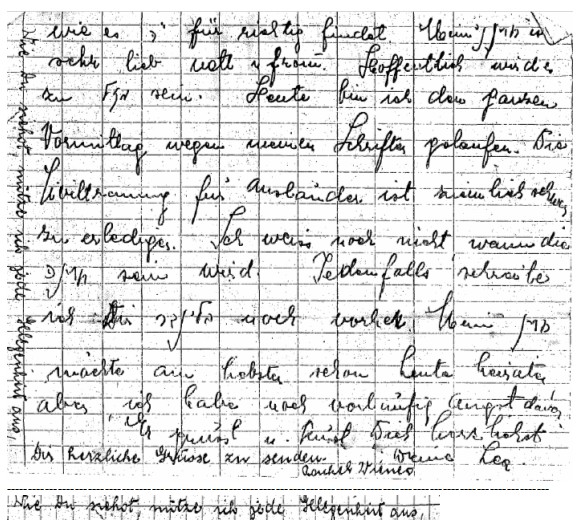 wie es ה' für richtig findet. Mein חתן ist
sehr lieb nett u fromm. Hoffentlich wird es
zu sein. Heute bin ich den ganzen
Vormittag wegen meinen Schriften gelaufen. Die
Ziviltrauung für Ausländer ist ziemlich schwer
zu erledigen. Ich weiss noch nicht, wann die
sein wird. Jedenfalls schreibe
ich Dir noch vorher. Mein חתן
möchte am liebsten schon heute heiraten
aber ich habe noch vorläufig Angst davor
Es grüsst u. küsst Dich herzlichst
Deine Lea
Wie Du siehst, nütze ich jede Gelegenheit aus,
Dir herzliche Grüsse zu senden.
Rachel
Wie Du siehst, nütze ich jede Gelegenheit aus,